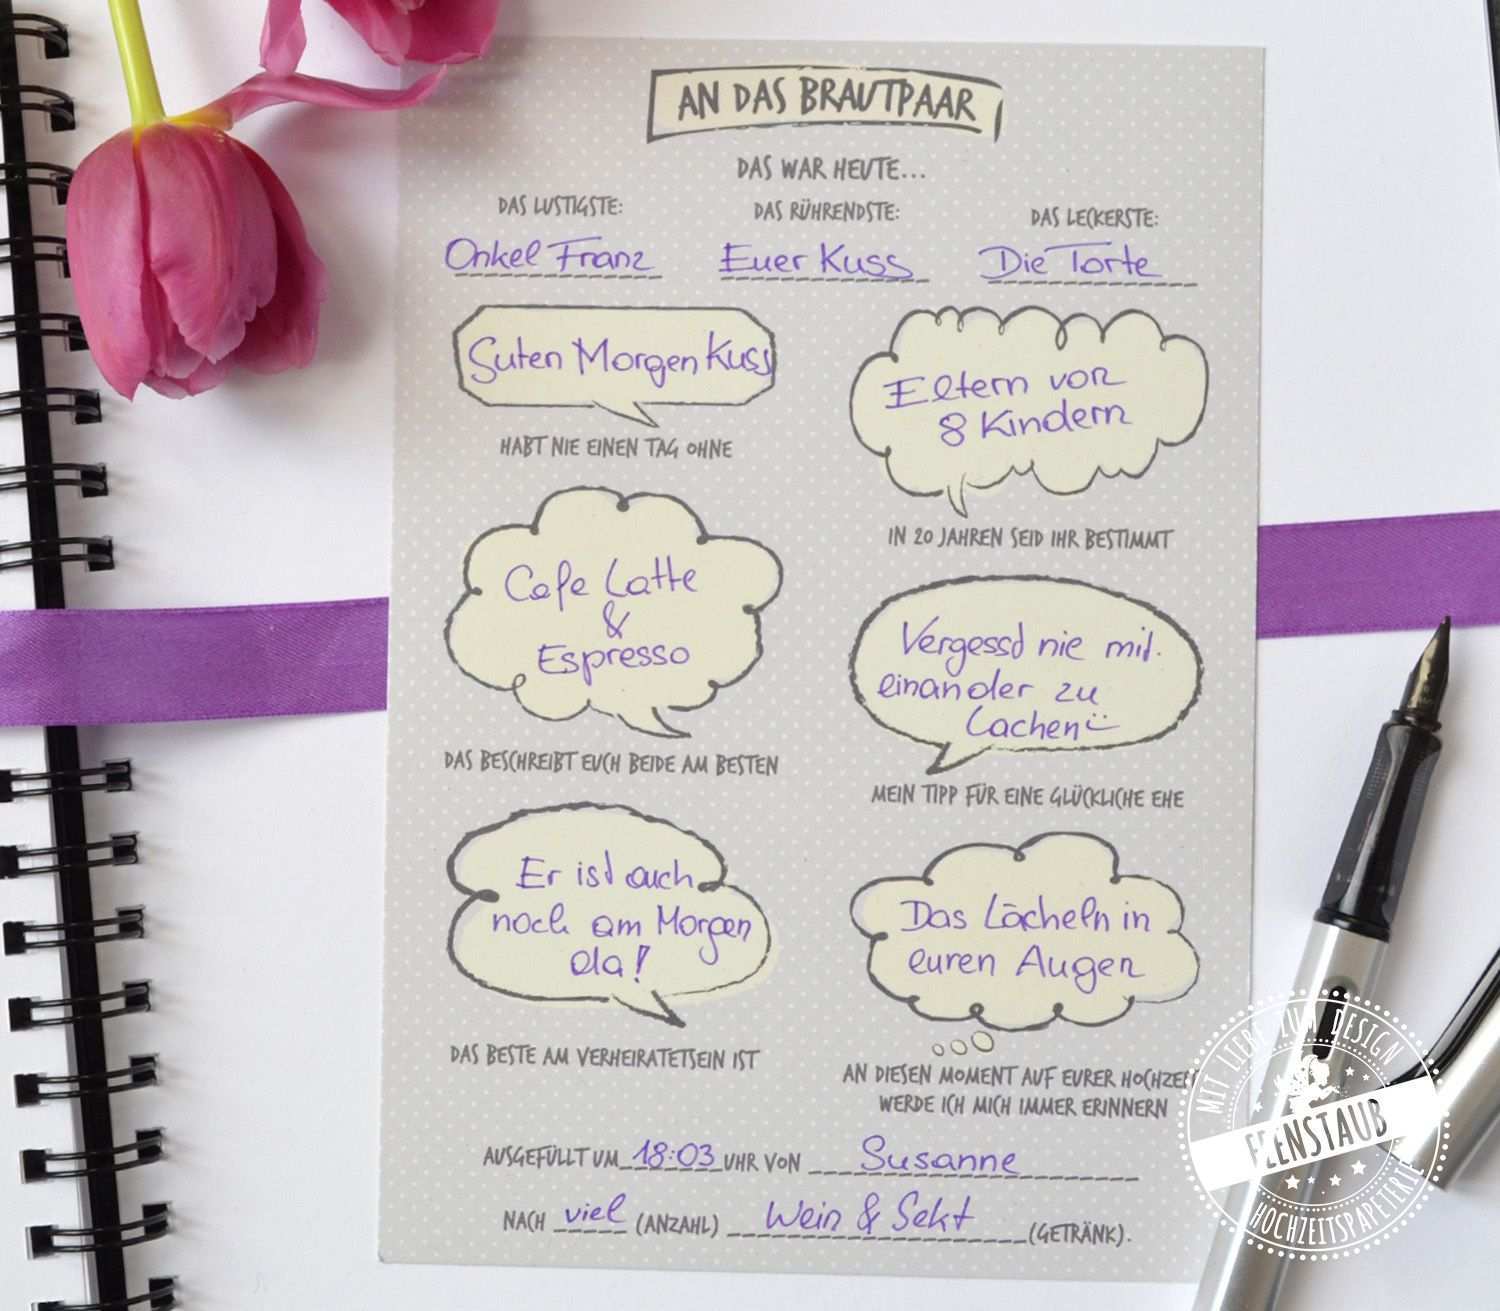 AN DAS BRAUTPAAR
DAS WAR HEUTE...
DAS LUSTIGSTE:
Onkel Franz
DAS RÜHRENDSTE:
Euer Kuss
DAS LECKERSTE:
Die Torte
Guten Morgen Kuss
HABT NIE EINEN TAG OHNE
Eltern von
8 Kindern
IN 20 JAHREN SEID IHR BESTIMMT
Cafe Latte
&
Espresso
DAS BESCHREIBT EUCH BEIDE AM BESTEN
Vergessd nie mit-
einander zu
Lachen
MEIN TIPP FÜR EINE GLÜCKLICHE EHE
Er ist auch
noch am Morgen
da!
DAS BESTE AM VERHEIRATETSEIN IST
Das Lächeln in
euren Augen
AN DIESEN MOMENT AUF EURER HOCHZEI
WERDE ICH MICH IMMER ERINNERN
AUSGEFÜLLT UM 18:03 UHR VON Susanne
NACH viel (ANZAHL) Wein & Sekt (GETRÄNK).
MIT LIEBE ZUM DESIGN
FEENSTAUB
HOCHZEITSPAPETERIE